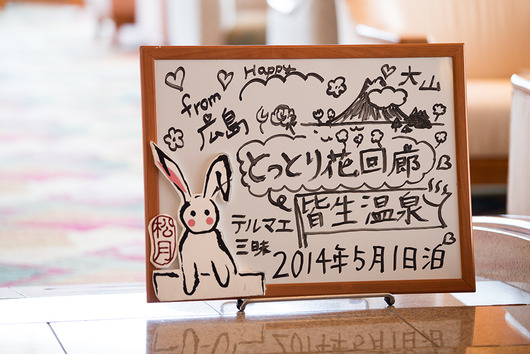 Happy
from
広島
大山
とっとり花回廊
皆生温泉
テルマエ
三昧
松月
2014年5月1日泊